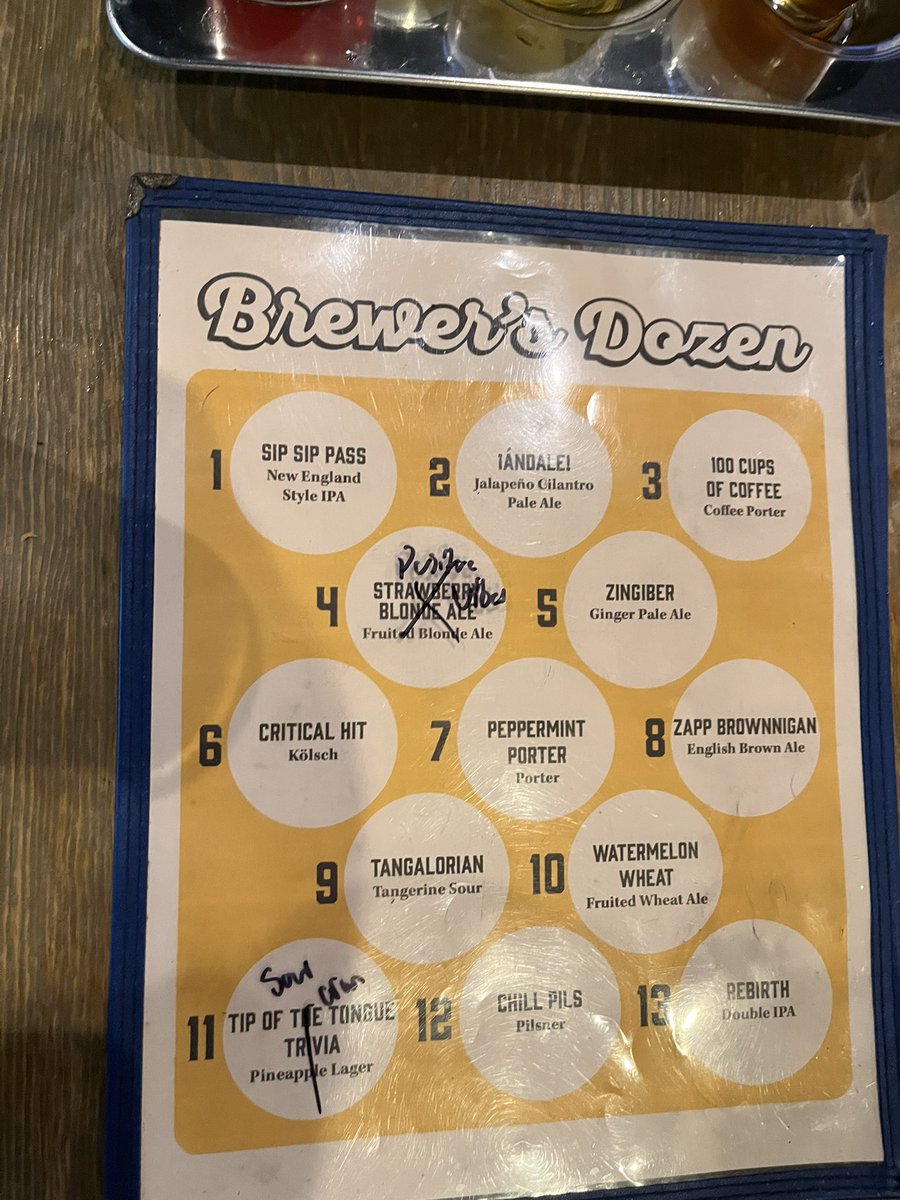 Brewer's Dozen
1
SIP SIP PASS
New England
Style IPA
2
¡ÁNDALE!
Jalapeño Cilantro
Pale Ale
3
100 CUPS
OF COFFEE
Coffee Porter
4
Positive
Vibes
STRAWBERRY
BLONDE ALE
Fruited Blonde Ale
5
ZINGIBER
Ginger Pale Ale
6
CRITICAL HIT
Kölsch
7
PEPPERMINT
PORTER
Porter
8
ZAPP BROWNNIGAN
English Brown Ale
9
TANGALORIAN
Tangerine Sour
10
WATERMELON
WHEAT
Fruited Wheat Ale
11
Sour
TIP OF THE TONGUE
TRIVIA
Pineapple Lager
12
CHILL PILS
Pilsner
13
REBIRTH
Double IPA